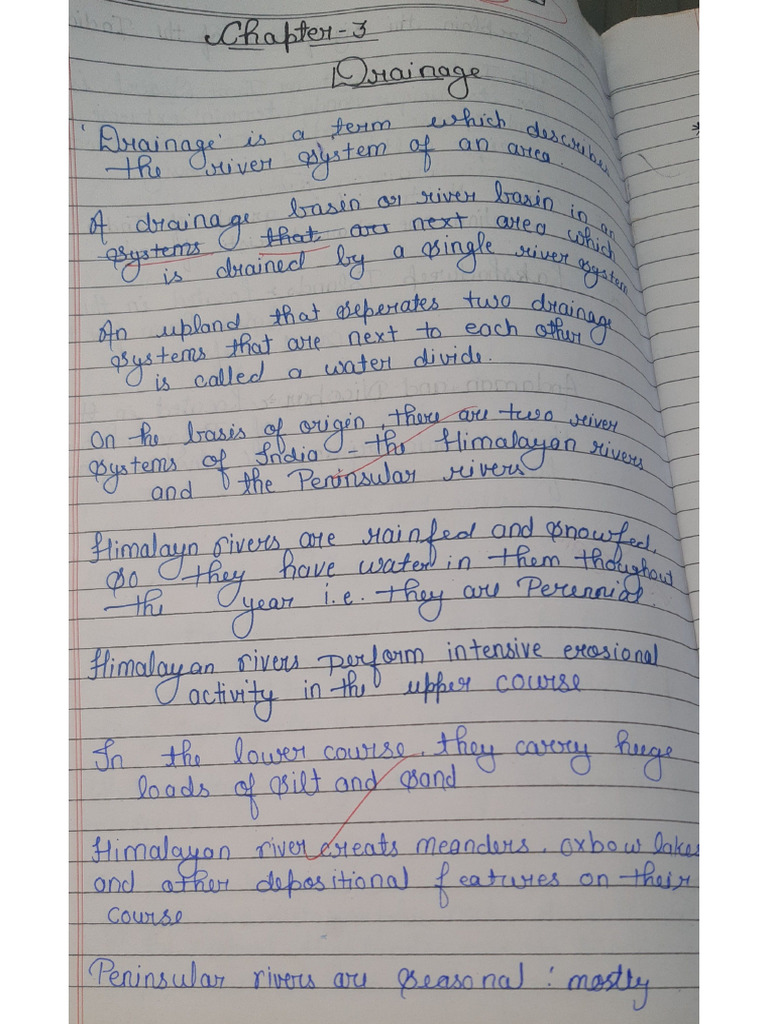 Chapter-3
Drainage
'Drainage' is a term which describes
the river system of an area.
A drainage basin or river basin in an
systems that are next area which
is drained by a single river system
An upland that seperates two drainage
systems that are next to each other
is called a water divide.
On the basis of origin, there are two river
systems of India - the Himalayan rivers
and the Peninsular rivers
Himalayn rivers are rainfed and snowfed.
so they have water in them thoughout
the year i.e. they are Perennial.
Himalayan rivers perform intensive erosional
activity in the upper course
In the lower course, they carry huge
loads of silt and sand
Himalayan river creats meanders, oxbow lakes
and other depositional features on their
course
Peninsular rivers are seasonal : mostly